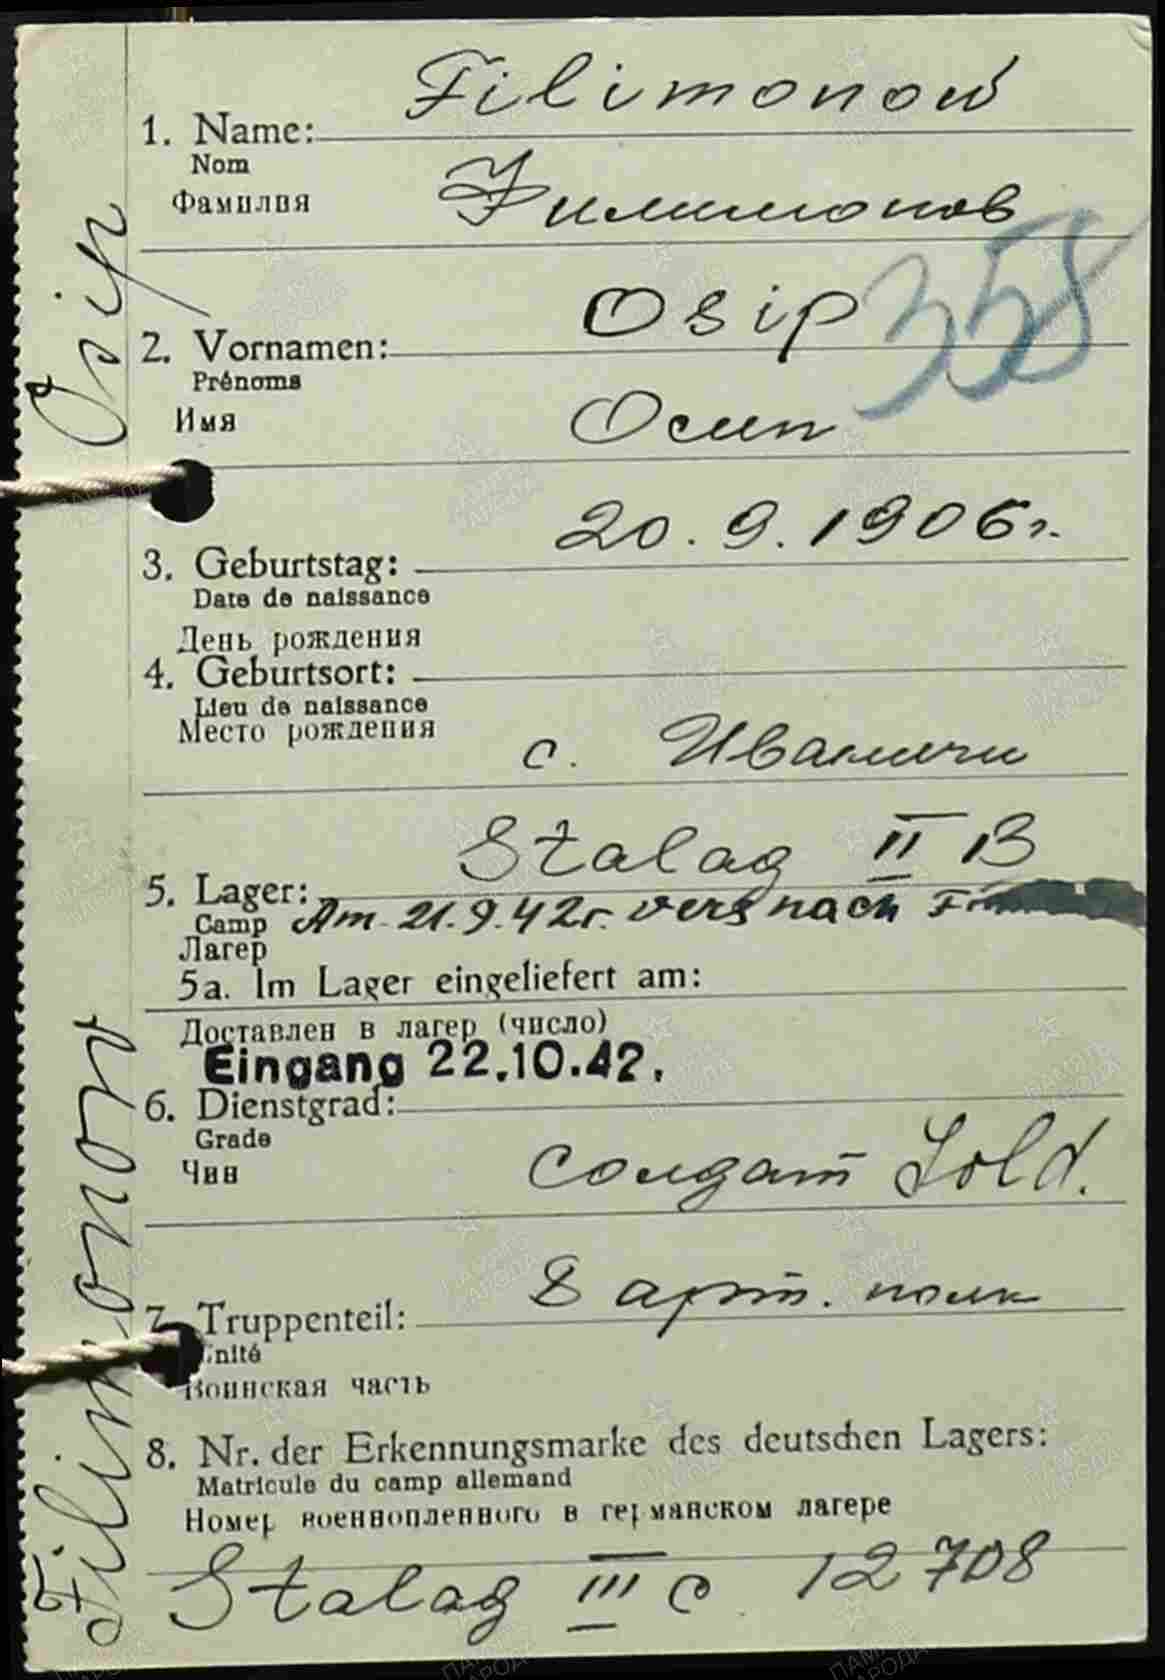 Filimonow
1. Name:
Nom
Фамилия
Филимонов
Osip
358
2. Vornamen:
Prénoms
Имя
Осип
20.9.1906г.
3. Geburtstag:
Date de naissance
День рождения
4. Geburtsort:
Lieu de naissance
Место рождения
с. Иваничи
Stalag II B
5. Lager:
Camp Am 21.9.42г. vers nach
Лагер
5a. Im Lager eingeliefert am:
Доставлен в лагер (число)
Eingang 22.10.42.
6. Dienstgrad:
Grade
Чин
солдат Sold.
8 арт. полк
7. Truppenteil:
Unité
Воинская часть
8. Nr. der Erkennungsmarke des deutschen Lagers:
Matricule du camp allemand
Номер военнопленного в германском лагере
Stalag III c 12708
Filimonow Osip